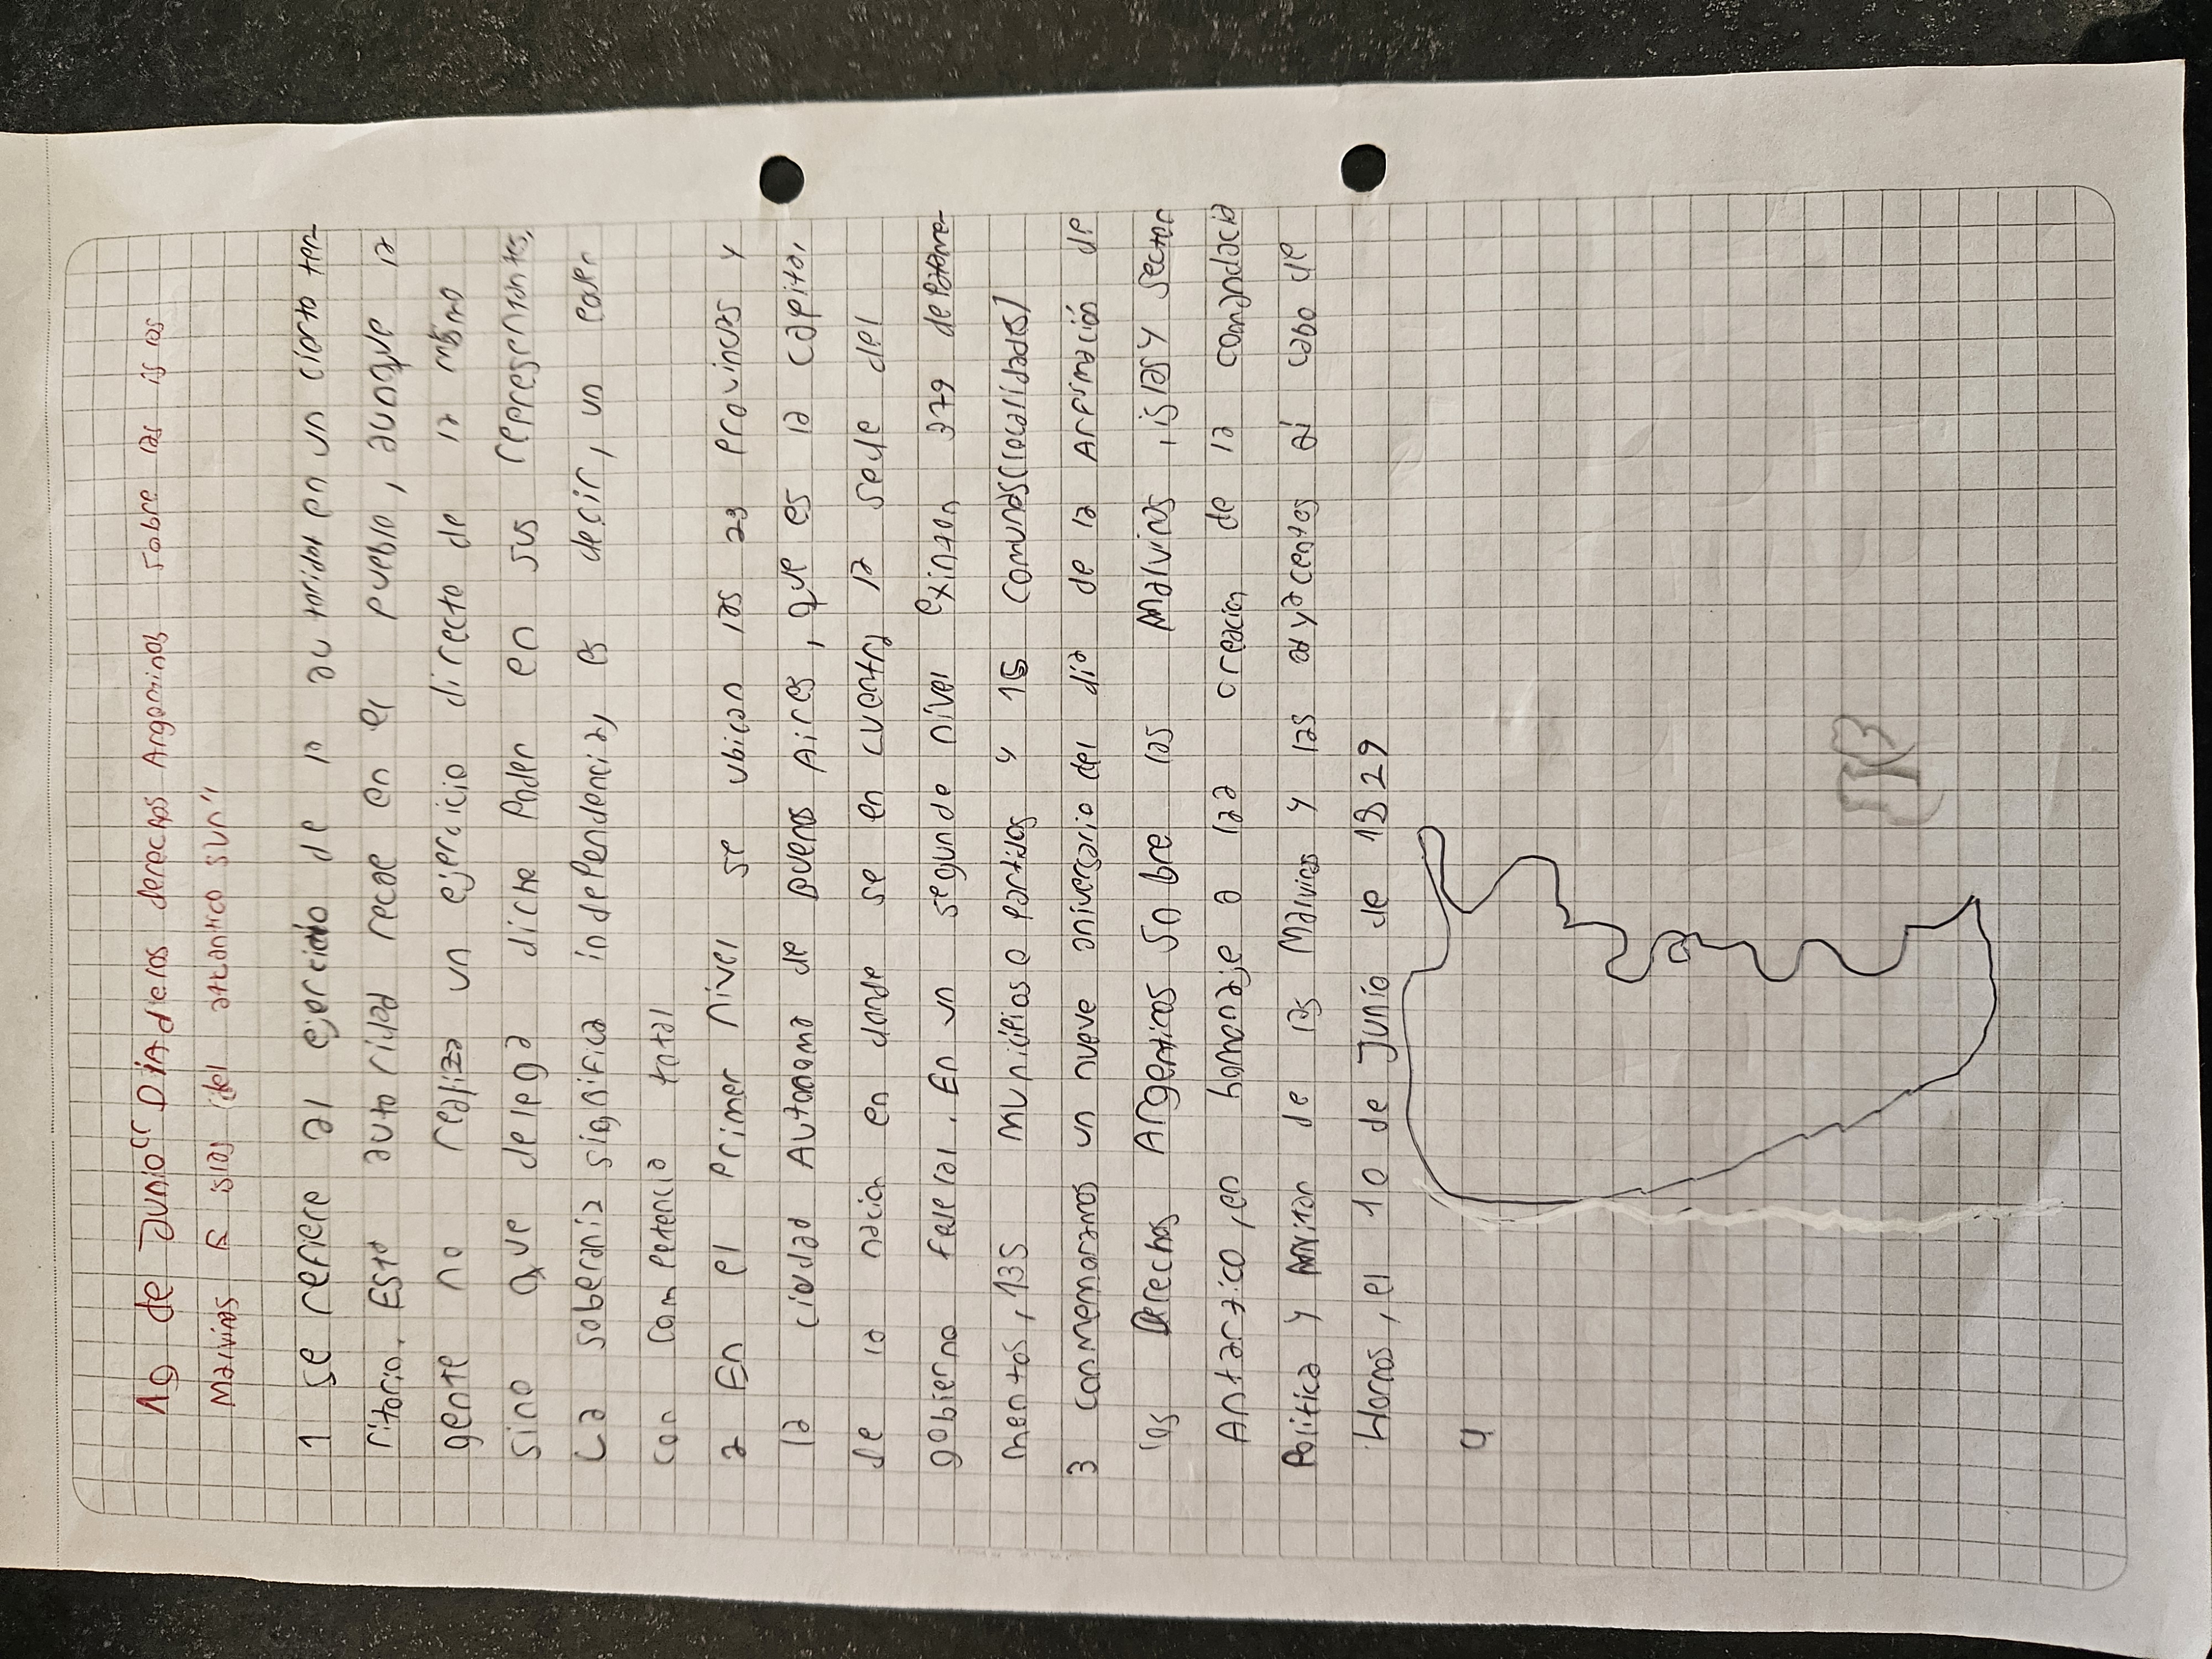 10 de Junio "DíA de los derechos Argentinos sobre las islas
Malvinas islas del atlantico sur"
1 se refiere al ejercicio de la autoridad en un cierto ter-
ritorio. Esto autoridad recae en el pueblo, aunque la
gente no realiza un ejercicio directo de la mismo
sino que delega diche Poder en sus representantes,
La soberania significa independencia, es decir, un
con competencia total
2 En el Primer nivel se ubican las 23 provincias y
la ciudad Autonoma de buenos Aires, que es la capital
de la nacion en donde se en cuentra la sede del
gobierno federal. En un segunde nivel 379 departa-
mentos, 135 Municipios o partidos y 15 comunas
3 conmemoramos un nueve aniversario del dia de la Afirmación de
los Derechos Argentinos Sobre las Malvinas, islas y Sector
Antartico, en homonaje a la creacion de la comandacia
Politica y Militar de las Malvinas y las adyacentes al cabo de
Hornos, el 10 de Junio de 1829
4